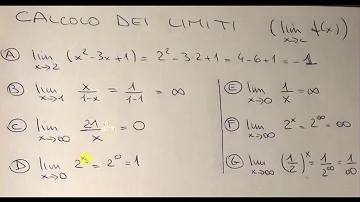 CALCOLO DEI LIMITI (lim x→c f(x))
A lim x→2 (x²-3x+1) = 2²-3·2+1 = 4-6+1 = -1
B lim x→1 x/1-x = 1/1-1 = ∞
C lim x→∞ 21/x = 0
D lim x→0 2ˣ = 2⁰ = 1
E lim x→0 1/x = ∞
F lim x→∞ 2ˣ = 2^∞ = ∞
G lim x→∞ (1/2)ˣ = 1/2^∞ = 1/∞